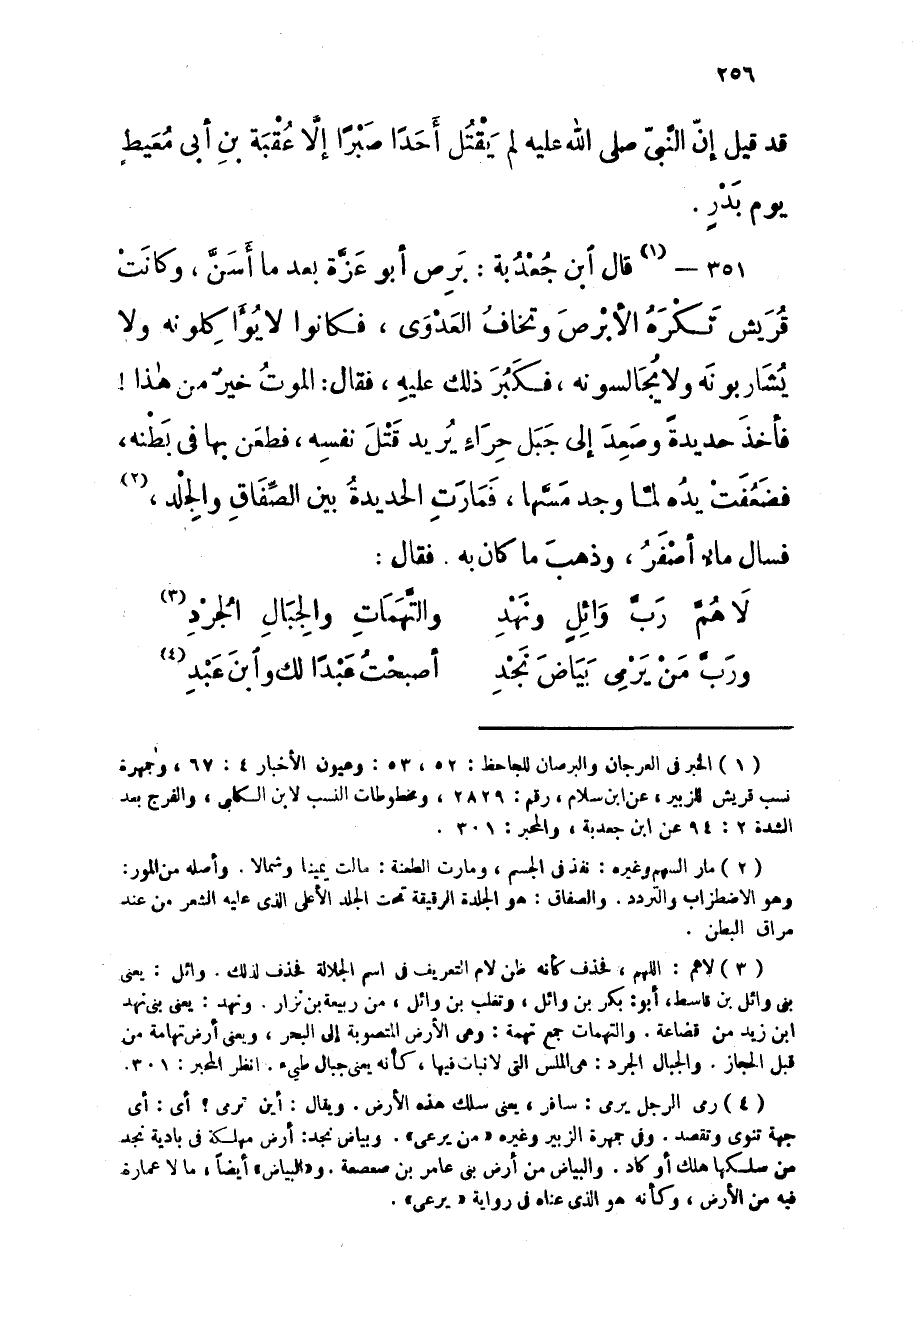 ٢٥٦
قد قيل إنّ النَّبىّ صلى الله عليه لم يَقْتُل أَحَدًا صَبْرًا إلَّا عُقْبَة بنِ أبى مُعَيطٍ
يوم بَدْرٍ .
٣٥١ – (١) قال أبن جُعْدُبة : بَرِص أبو عَزَّة بعد ما أَسَنَّ ، وكانَتْ
قُرَيش تَكْرَهُ الأبْرصَ وتخافُ العَدْوَى ، فكانوا لا يُوَّاكِلونه ولا
يُشَاربونَه ولا يُجَالسونه ، فكَبُرَ ذلك عليهِ ، فقال: الموتُ خيرٌ من هٰذا !
فأخذَ حديدةً وصَعِدَ إلى جَبَل حِرَاءِ يُريد قَتْلَ نفسِه ، فطعَن بها فى بَطْنه ،
فضَعُفَتْ يدُه لمّا وجد مَسَّها ، فَمَارَتِ الحديدةُ بين الصِّفَاقِ والجِلْد ، (٢)
فسال مالا أصْفَرُ ، وذهبَ ما كان به . فقال :
لَا هُمَّ رَبَّ وَائِلٍ ونَهْدِ والتَّهَمَاتِ والجِبَالِ الجُرْدِ (٣)
وربَّ مَنْ يَرْمِى بَيَاضَ نَجْدِ أصبحْتُ عَبْدًا لك وأبنَ عَبْدِ (٤)
( ١ ) الخبر فى العرجان والبرصان للجاحظ : ٥٢ ، ٥٣ : وعيون الأخبار ٤ : ٦٧ ، وجمهرة
نسب قريش للزبير ، عن ابن سلام ، رقم : ٢٨٢٩ ، ومخطوطات النسب لابن الكلبى ، والفرج بعد
الشدة ٢ : ٩٤ عن ابن جعدبة ، والمحبر : ٣٠١ .
( ٢ ) مار السهم وغيره : نفذ فى الجسم ، ومارت الطعنة : مالت يمينا وشمالا . وأصله من المور :
وهو الاضطراب والتردد . والصفاق : هو الجلدة الرقيقة تحت الجلد الأعلى الذى عليه الشعر من عند
مراق البطن .
( ٣ ) لاهم : اللهم ، فحذف كأنه ظن لام التعريف فى اسم الجلالة فحذف لذلك . وائل : يعنى
بنى وائل بن قاسط، أبو: بكر بن وائل ، وتغلب بن وائل ، من ربيعة بن نزار . ونهد : يعنى بنى نهد
ابن زيد من قضاعة . والتهمات جمع تهمة : وهى الأرض المتصوبة إلى البحر ، ويعنى أرض تهامة من
قبل الحجاز . والجبال الجرد : هى الملس التى لا نبات فيها ، كأنه يعنى جبال طيىء . انظر المحبر : ٣٠١.
( ٤ ) رمى الرجل يرمى : سافر ، يعنى سلك هذه الأرض . ويقال : أين ترمى ؟ أى : أى
جهة تنوى وتقصد . وفى جمهرة الزبير وغيره « من يرعى » . وبياض نجد: أرض مهلكة فى بادية نجد
من سلكها هلك أو كاد . والبياض من أرض بنى عامر بن صعصعة . و« البياض » أيضاً ، ما لا عمارة
فيه من الأرض ، وكأنه هو الذى عناه فى رواية « يرعى » .